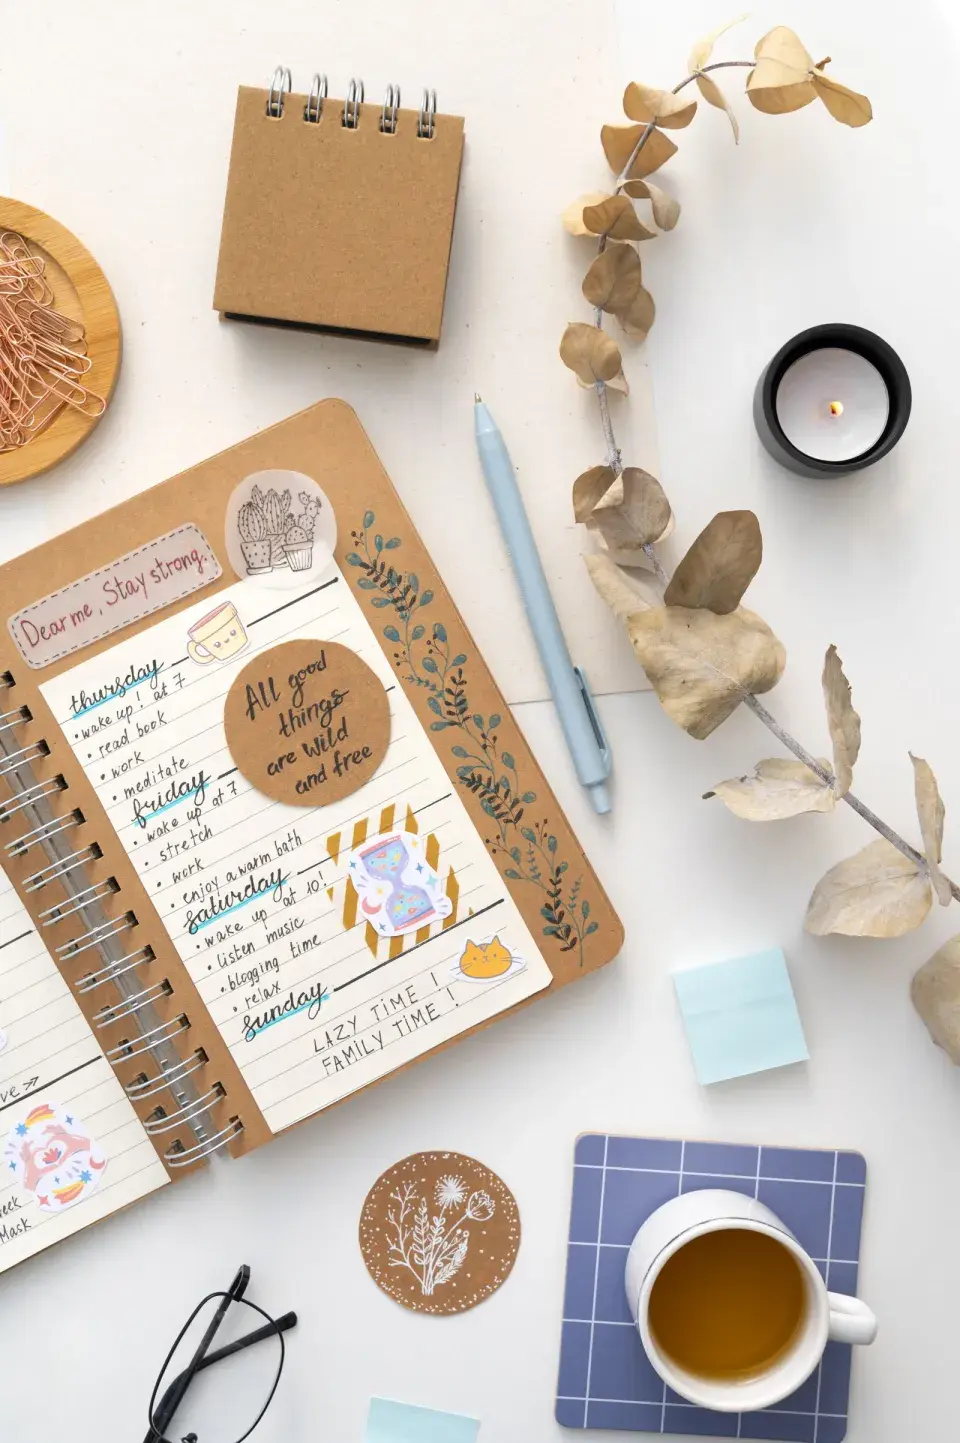 Dear me, Stay strong.
thursday
• wake up! at 7
• read book
• work
• meditate
All good
things
are Wild
and free
friday
• wake up at 7
• stretch
• work
• enjoy a warm bath
saturday
• wake up at 10!
• listen music
• blogging time
• relax
sunday
LAZY TIME!
FAMILY TIME!
Mask